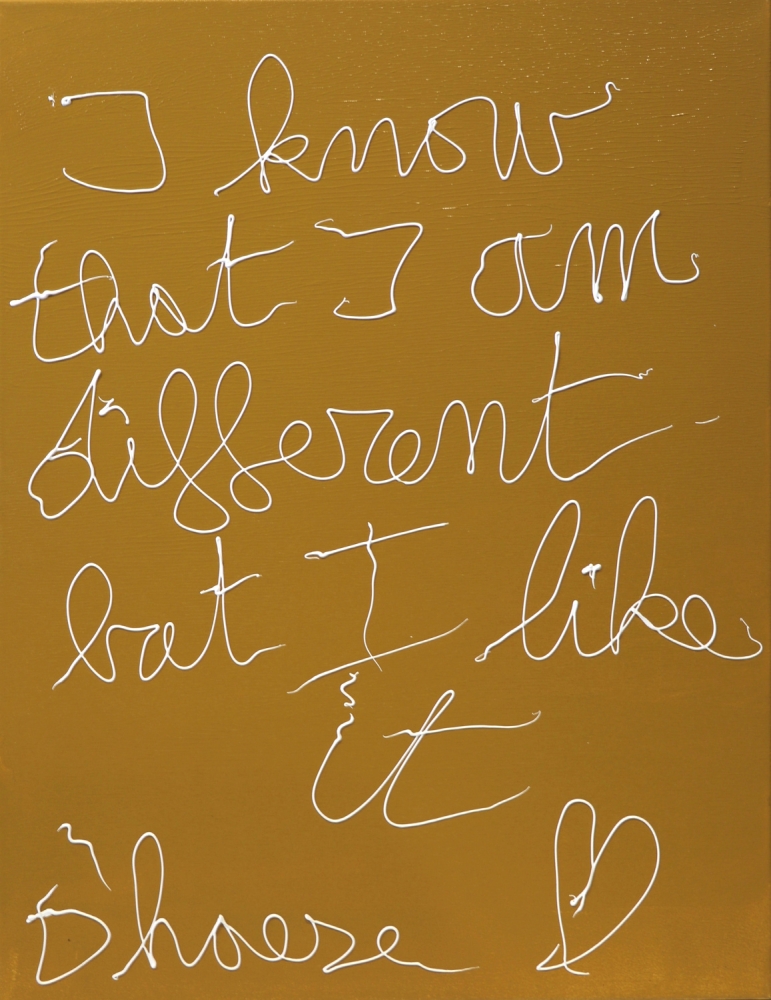 I know
that I am
different
bat I like
it